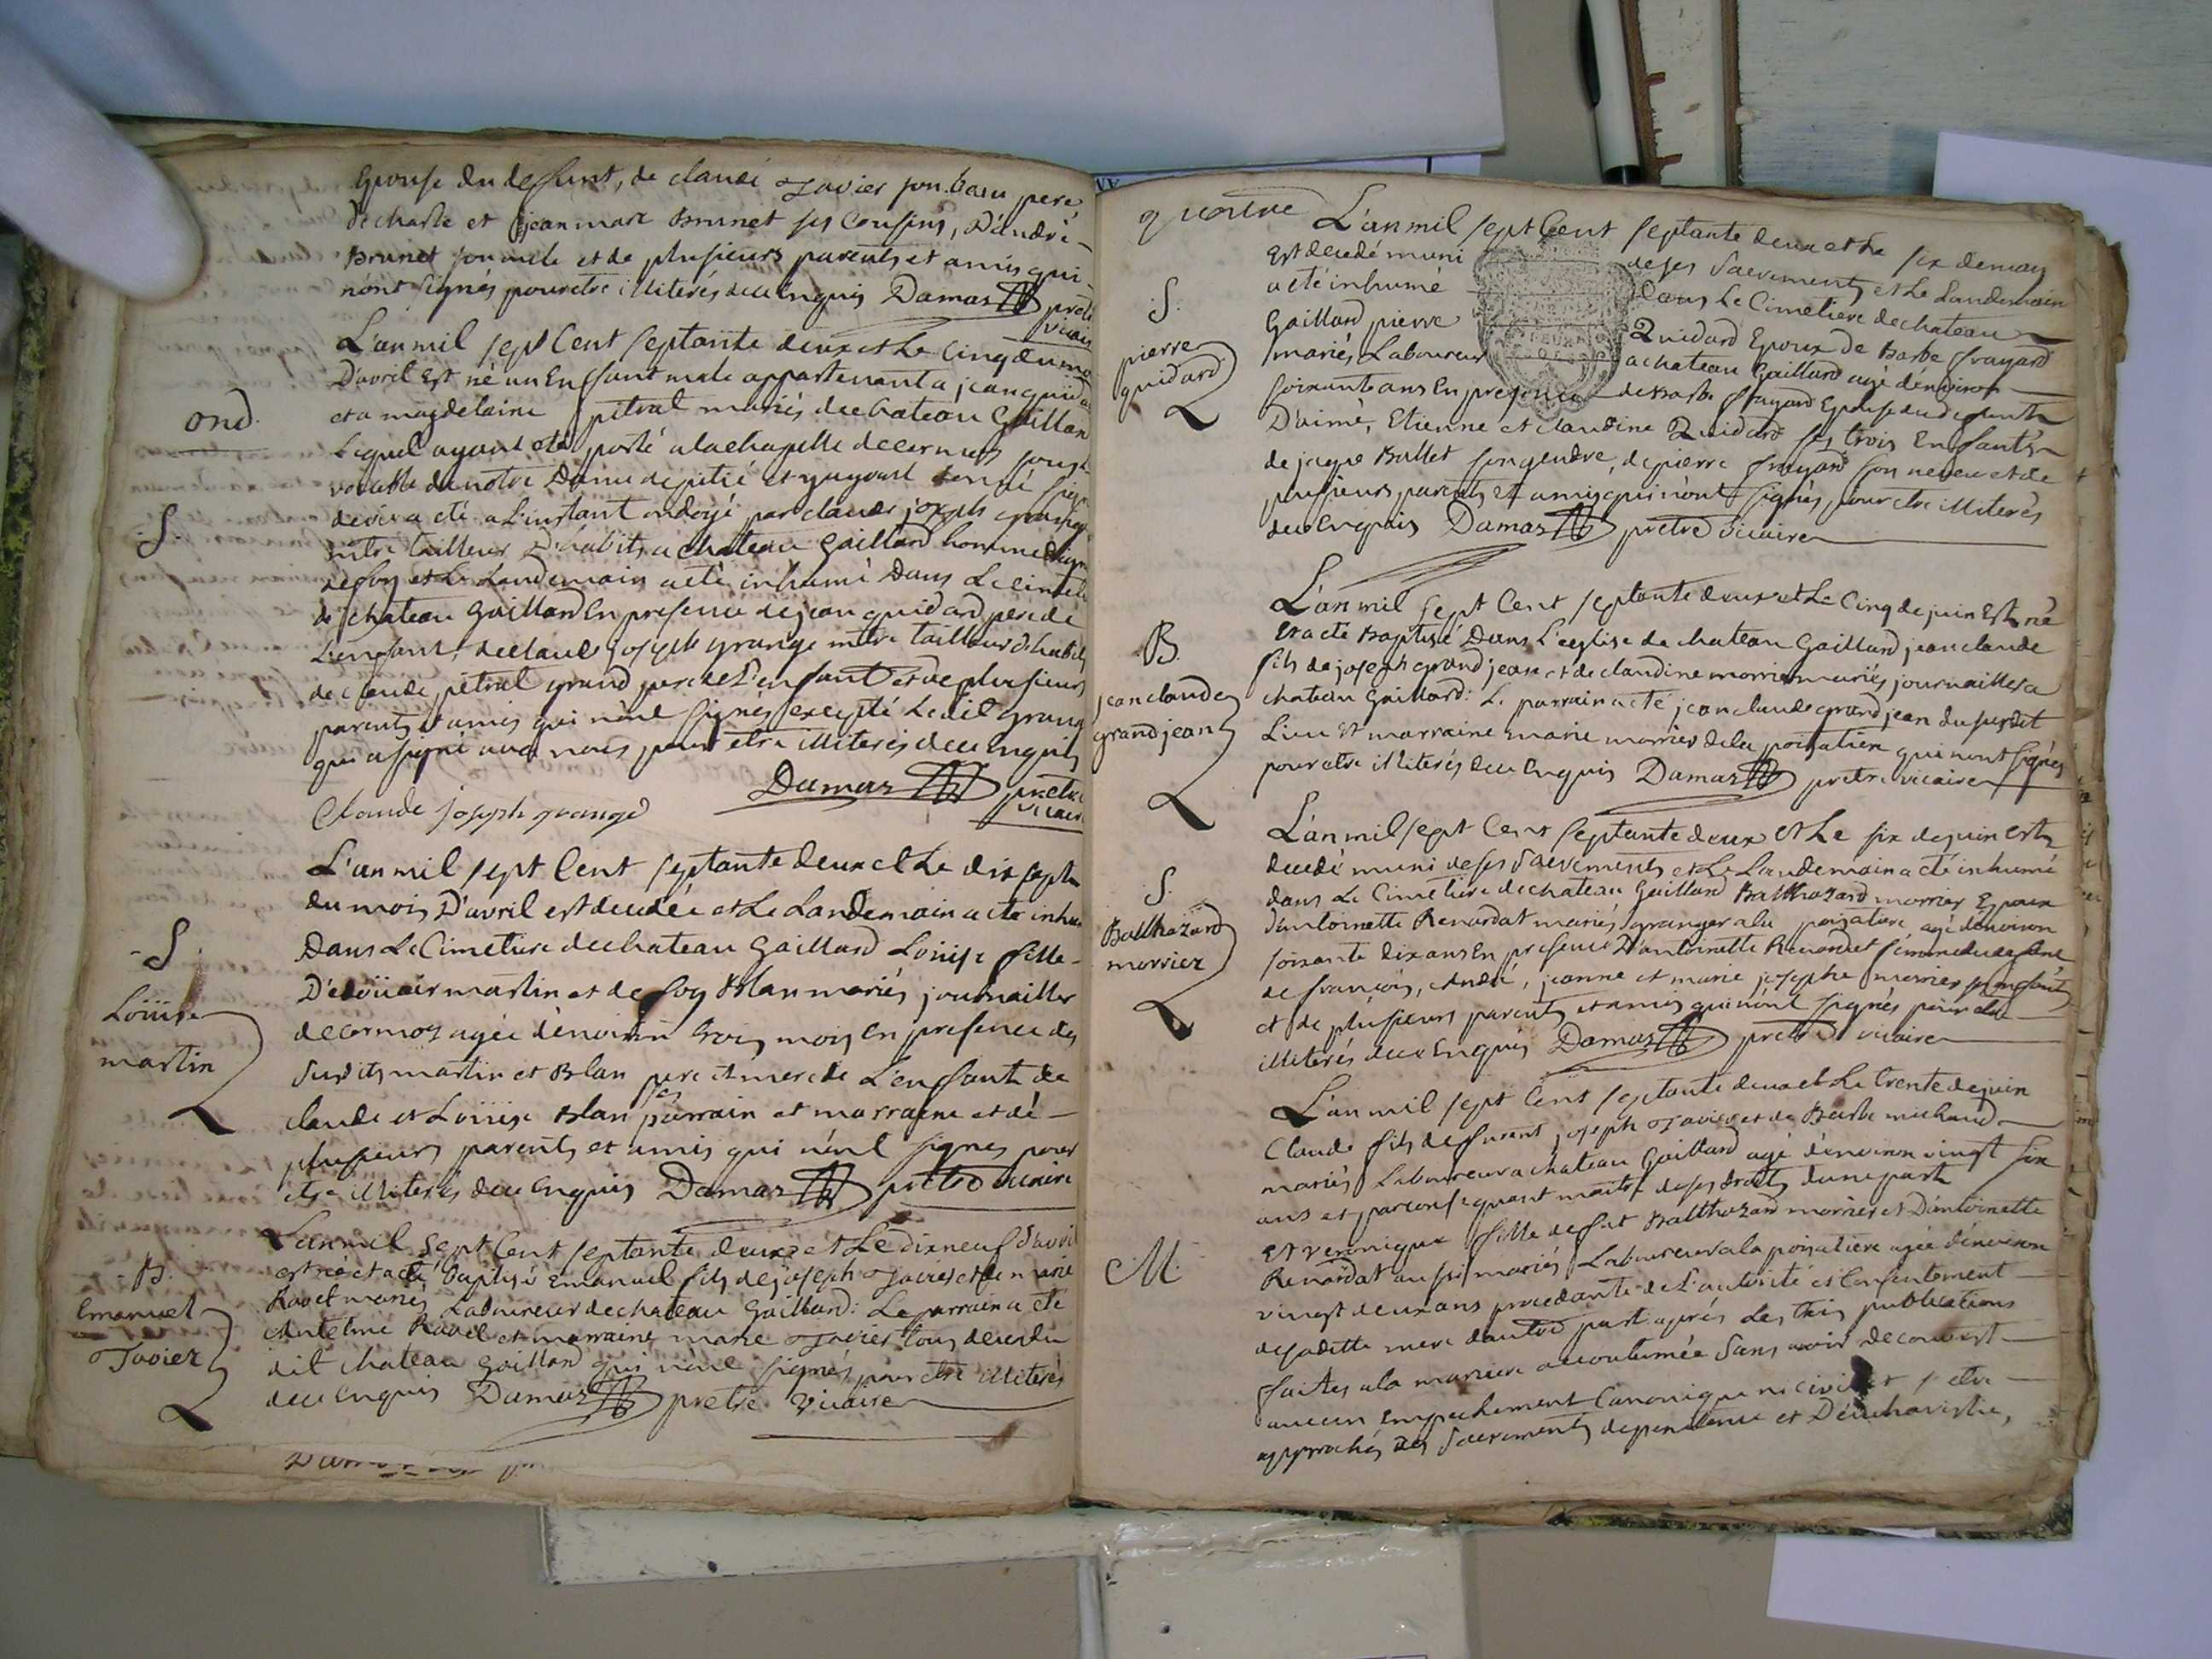 Epouse du deffunt, de claude Javier son beau pere
de charle et jean marc Brunet ses Cousins, D'andré
Brunet son oncle et de plusieurs parents et amis qui
n'ont signés pour etre illiterés de ce Enquis Damas prêtre
vicaire
ond.
S.
L'an mil sept Cent septante deux et Le Cinq du mois
D'avril Est né un Enffant male appartenant a jean quidard
et a magdelaine pitral mariés de chateau Gaillard
Lequel ayant eté porté a la chapelle de cormoz sous le
vocable de notre Dame de pitié et y ayant donné signe
de vie a eté a L'instant ondoyé par claude joseph grange
mtre tailleur D'habits a chateau Gaillard homme digne
de foy et Le Landemain a eté inhumé Dans Le cimetiere
de chateau Gaillard En presence de jean quidard pere de
L'enfant, de claude joseph grange mtre tailleur d'habits
de claude pitral grand pere de L'enfant et de plusieurs
parents et amis qui n'ont signés excepté Ledit grange
qui a signé avec nous pour etre illiterés de ce Enquis
Damas prêtre
vicaire
Claude joseph grange
S.
Loüise
martin
L'an mil sept Cent septante deux et Le dix sept
du mois D'avril est decedée et Le Landemain a eté inhumée
Dans Le Cimetiere de chateau Gaillard Loüise fille
D'edoüair martin et de foy Blan mariés journallier
de cormoz agée d'environ trois mois En presence des
susdits martin et Blan pere et mere de L'enfant de
claude et Loüise Blan ses parrain et marraine et de
plusieurs parents et amis qui n'ont signes pour
etre illiterés de ce Enquis Damas prêtre vicaire
B.
Emanuel
Javier
L'an mil sept Cent septante deux et Le dix neuf d'avril
est né et a eté baptisé Emanuel fils de joseph Javier et de marie
Ravet mariés Laboureur de chateau Gaillard: Le parrain a eté
Antelme Ravet et marraine marie Javier tous deux du
dit chateau Gaillard qui n'ont signés pour etre illiterés
de ce Enquis Damas prêtre vicaire
quatre
S.
pierre
quidard
L'an mil sept Cent septante deux et Le six de may
Est decedé muni de ses Sacrements et Le Landemain
a eté inhumé dans Le Cimetiere de chateau
Gaillard pierre Quidard Epoux de Barbe frayard
mariés Laboureur a chateau Gaillard agé d'environ
soixante ans En presence de Barbe frayard Epouse du deffunt
D'aimé, Etienne et claudine Quidard ses trois Enfants
de jaque Ballet son gendre, de pierre frayard son neveu et de
plusieurs parents et amis qui n'ont signés pour etre illiterés
de ce Enquis Damas prêtre vicaire
B.
jean claude
grand jean
L'an mil sept Cent septante deux et Le Cinq de juin Est né
Et a eté Baptisé Dans L'eglise de chateau Gaillard jean claude
fils de joseph grand jean et de claudine morrier mariés journallier a
chateau Gaillard: Le parrain a eté jean claude grand jean du susdit
Lieu et marraine marie morrier de la poisatiere qui n'ont signés
pour etre illiterés de ce Enquis Damas prêtre vicaire
S.
Balthazard
morrier
L'an mil sept Cent septante deux et Le six de juin est
decedé muni de ses Sacrements et Le Landemain a eté inhumé
dans Le Cimetiere de chateau Gaillard Balthazard morrier Epoux
d'antoinette Renardat mariés granger a la poisatiere agé d'environ
soixante dix ans En presence D'antoinette Renardat femme du deffunt
de françois, André, jeanne et marie josephe morrier ses enfants
et de plusieurs parents et amis qui n'ont signés pour etre
illiterés de ce Enquis Damas prêtre vicaire
M.
L'an mil sept Cent septante deux et Le trente de juin
Claude fils de deffunt joseph Javier et de Barbe michaud
mariés Laboureur a chateau Gaillard agé d'environ vingt six
ans et par consequant maitre de ses droits d'une part
Et veronique fille de fut Balthazard morrier et D'antoinette
Renardat aussi mariés Laboureur a la poisatiere agée d'environ
vingt deux ans procedante de L'autorité et Consentement
de sa ditte mere d'autre part aprés Les trois publications
faites a la maniere accoutumée Sans avoir decouvert
aucun Empechement Canonique ni civil et s'etre
approchés des Sacrements de penitence et D'eucharistie,